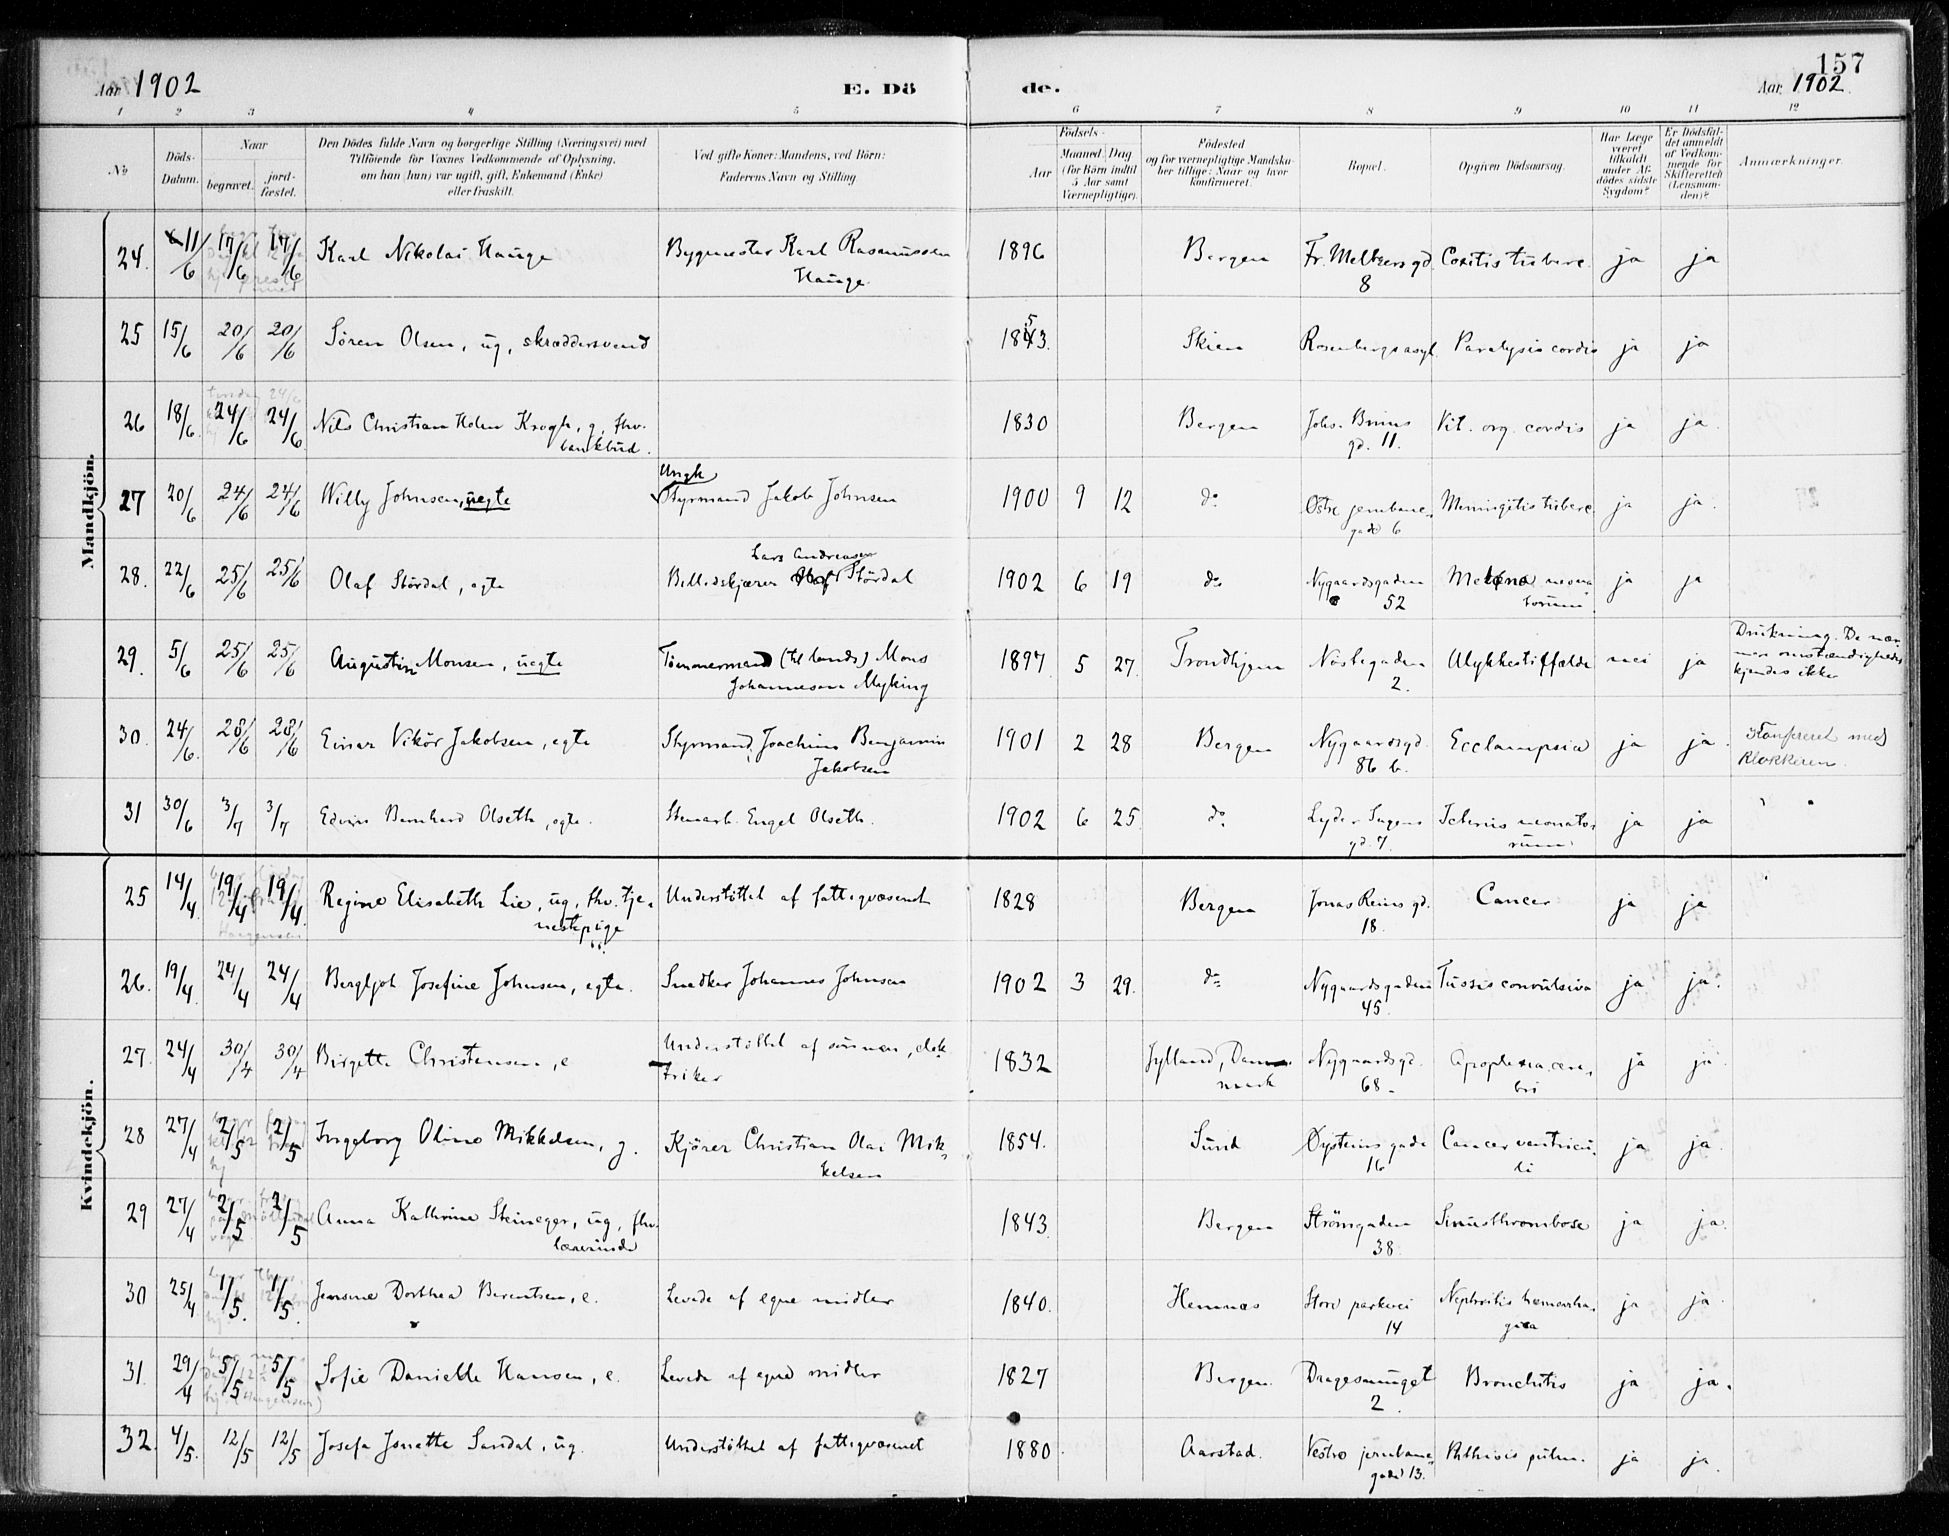 157
Aar 1902
E. Dö
de.
Aar 1902
1 2 3 4 5 6 7 8 9 10 11 12
No
Döds-Datum.
Naar
begravet.
jord-fæstet.
Den Dödes fulde Navn og borgerlige Stilling (Næringsvei) med
Tilföiende for Voxnes Vedkommende af Oplysning,
om han (hun) var ugift, gift, Enkemand (Enke)
eller fraskilt.
Ved gifte Koner: Mandens, ved Börn:
Faderens Navn og Stilling
Födsels-
Aar
Maaned Dag
(for Börn indtil
5 Aar samt
Værnepligtige).
Födested
og for værnepligtige Mandska-
ber tillige: Naar og hvor
konfirmeret.
Bopæl.
Opgiven Dödsaarsag.
Har Læge
været
tilkaldt
under Af-
dödes sidste
Sygdom?
Er Dödsfal-
det anmeldt
af Vedkom-
mende for
Skifteretten
(Lensman-
den)?
Anmærkninger.
Mandkjön.
24. 11/6 17/6 17/6 Karl Nikolai Hauge Bygmester Karl Rasmussen 1896 Bergen Fr. Meltzersgd. Coxitis tuberc. ja ja
Hauge. 8
25 15/6 20/6 20/6 Sören Olsen, ug, skræddersvend 1853. Skien Rosenbergs asyl Paralysis cordis ja ja
26 18/6 24/6 24/6 Nils Christian Holm Krogh, g, fhv. 1830 Bergen Johs. Bruns Vit. org. cordis ja ja.
bankbud. gd. 11.
Ungk
27 20/6 24/6 24/6 Willy Johnsen, uegte Styrmand Jakob Johnsen 1900 9 12 do Östre jernbane- Meningitis tuberc. ja ja.
gade 6
Lars Andreasen
28. 22/6 25/6 25/6 Olaf Stördal, egte Billedskjærer Stördal 1902 6 19 do Nygaardsgaden Melena neona ja ja
52 torum
29. 5/6 25/6 25/6 Augustin Monsen, uegte Tömmermand (til lands) Mons 1897 5 27. Trondhjem Nöstegaden Ulykkestilfælde nei ja Drukning. De nær-
Johannesen Myking 2. mere omstændigheder
kjendes ikke
30. 24/6. 28/6 28/6 Einar Vikör Jakobsen, egte Styrmand, Joachim Benjamin 1901 2 28 Bergen Nygaardsgd. Ecclampsia ja ja. Konfereret med
Jakobsen 86 b. Klokkeren.
31 30/6 3/7 3/7 Edvin Bernhard Olseth, egte. Stenarb. Engel Olseth. 1902 6 25. do Lyder Sagens Icterus neonato- ja ja
gd. 7. rum
Kvindekjön.
25 14/4. 19/4 19/4. Regine Elisabeth Lie, ug, fhv. tje- Understöttet af fattigvæsenet 1828 Bergen Jonas Reins gd. Cancer ja ja
nestepige 18.
26. 19/4. 24/4 24/4 Bergljot Josefine Johnsen, egte. Snedker Johannes Johnsen 1902 3 29. do Nygaardsgaden Tussis convulsiva ja ja.
45.
27. 24/4 30/4 30/4 Birgette Christensen, e Understöttet af sönnen, elek- 1832 Jylland, Dan- Nygaardsgd. Apoplexia cere- ja ja
triker mark 68 bri
28 27/4 2/5 2/5 Ingeborg Oline Mikkelsen, g. Kjörer Christian Olai Mik- 1854. Sund Öysteins gade Cancer ventricu- ja ja.
kelsen 16 li
29 27/4 2/5 2/5 Anna Kathrine Steineger, ug, fhv. 1843. Bergen Strömgaden Sinusthrombose ja ja.
lærerinde 38.
30 25/4 1/5. 1/5. Jensine Dorthea Berentsen, e. Levede af egne midler 1840. Hemnæs Store parkvei Nephritis hæmorrha- ja ja
14 gica
31. 29/4 5/5 5/5 Sofie Danielle Hansen, e. Levede af egne midler 1827 Bergen. Dragesmuget Bronchitis ja ja.
2.
32. 4/5. 12/5 12/5 Josefa Jonette Sandal, ug. Understöttet af fattigvæsenet 1880. Aarstad. Vestre jernbane- Phthisis pulm. ja ja.
gade 13.